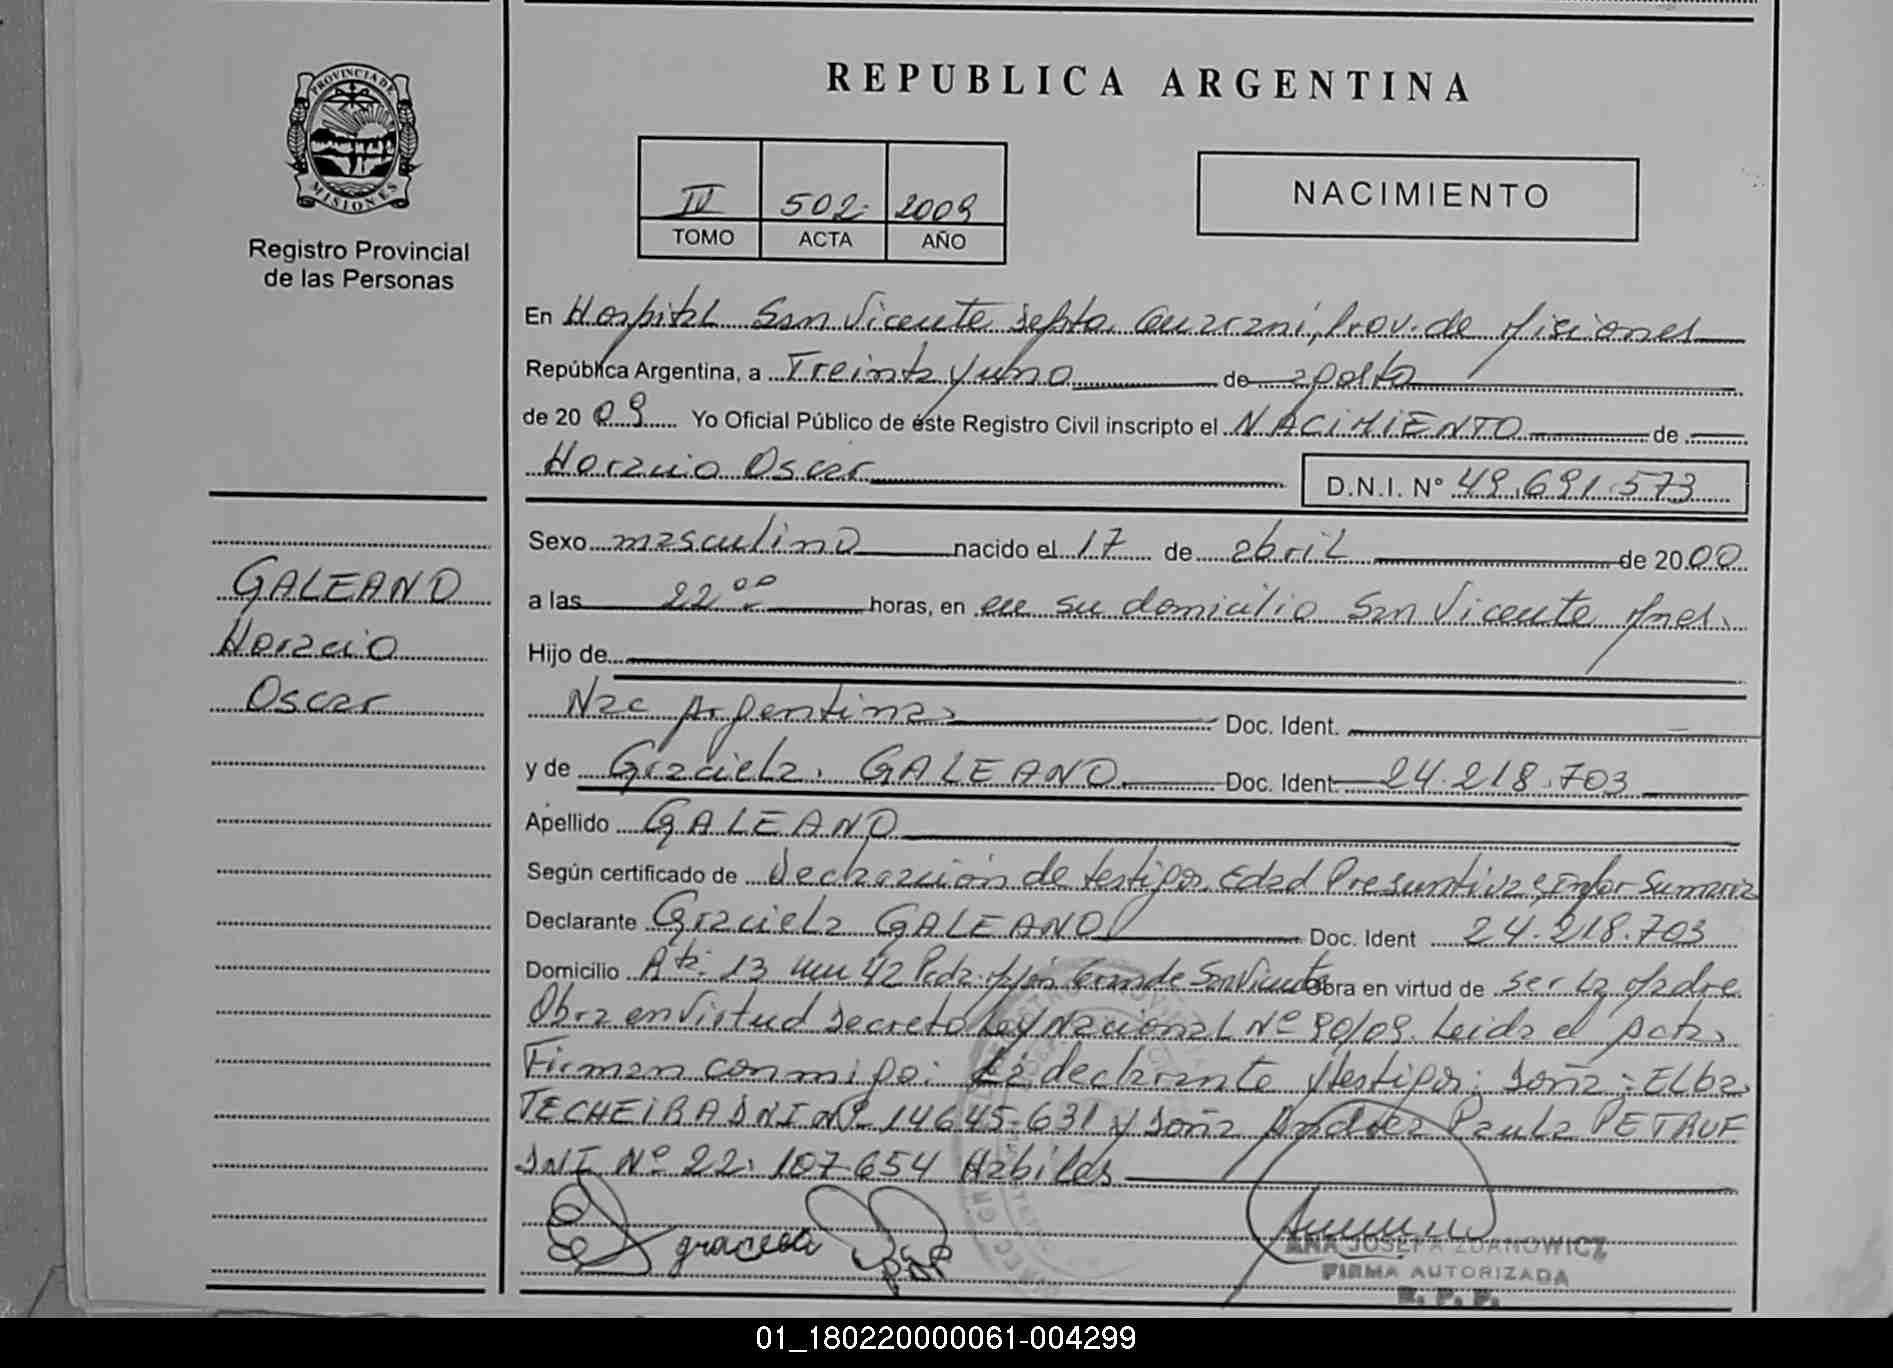 PROVINCIA DE
MISIONES
Registro Provincial
de las Personas
GALEANO
Horacio
Oscar
REPUBLICA ARGENTINA
IV 502 2009
TOMO ACTA AÑO
NACIMIENTO
En Hospital San Vicente Depto. Guarani, Prov. de Misiones
República Argentina, a Treinta y uno de agosto
de 2009 Yo Oficial Público de éste Registro Civil inscripto el NACIMIENTO de
Horacio Oscar D.N.I. N° 49.691.573
Sexo masculino nacido el 17 de abril de 2000
a las 22 00 horas, en en su domicilio San Vicente Mnes.
Hijo de
Nac Argentina Doc. Ident.
y de Graciela GALEANO Doc. Ident. 24.218.703
Apellido GALEANO
Según certificado de Declaración de testigos, Edad Presuntiva, Infor Sumaria
Declarante Graciela GALEANO Doc. Ident 24.218.703
Domicilio 13 Km 42 Pcda. Grande San Vicente Obra en virtud de ser la Madre
Obra en Virtud Decreto Ley Nacional Nº 90/09. Leida el Acta
Firman conmigo: La declarante y testigos: Doña: Elba
TECHEIRA DNI Nº 14645.631 y Doña Andrea Paula PETRUF
DNI Nº 22.107.654 Habiles
graciela
ANA JOSEFA ZDANOWICZ
FIRMA AUTORIZADA
R. P. P.
01_180220000061-004299